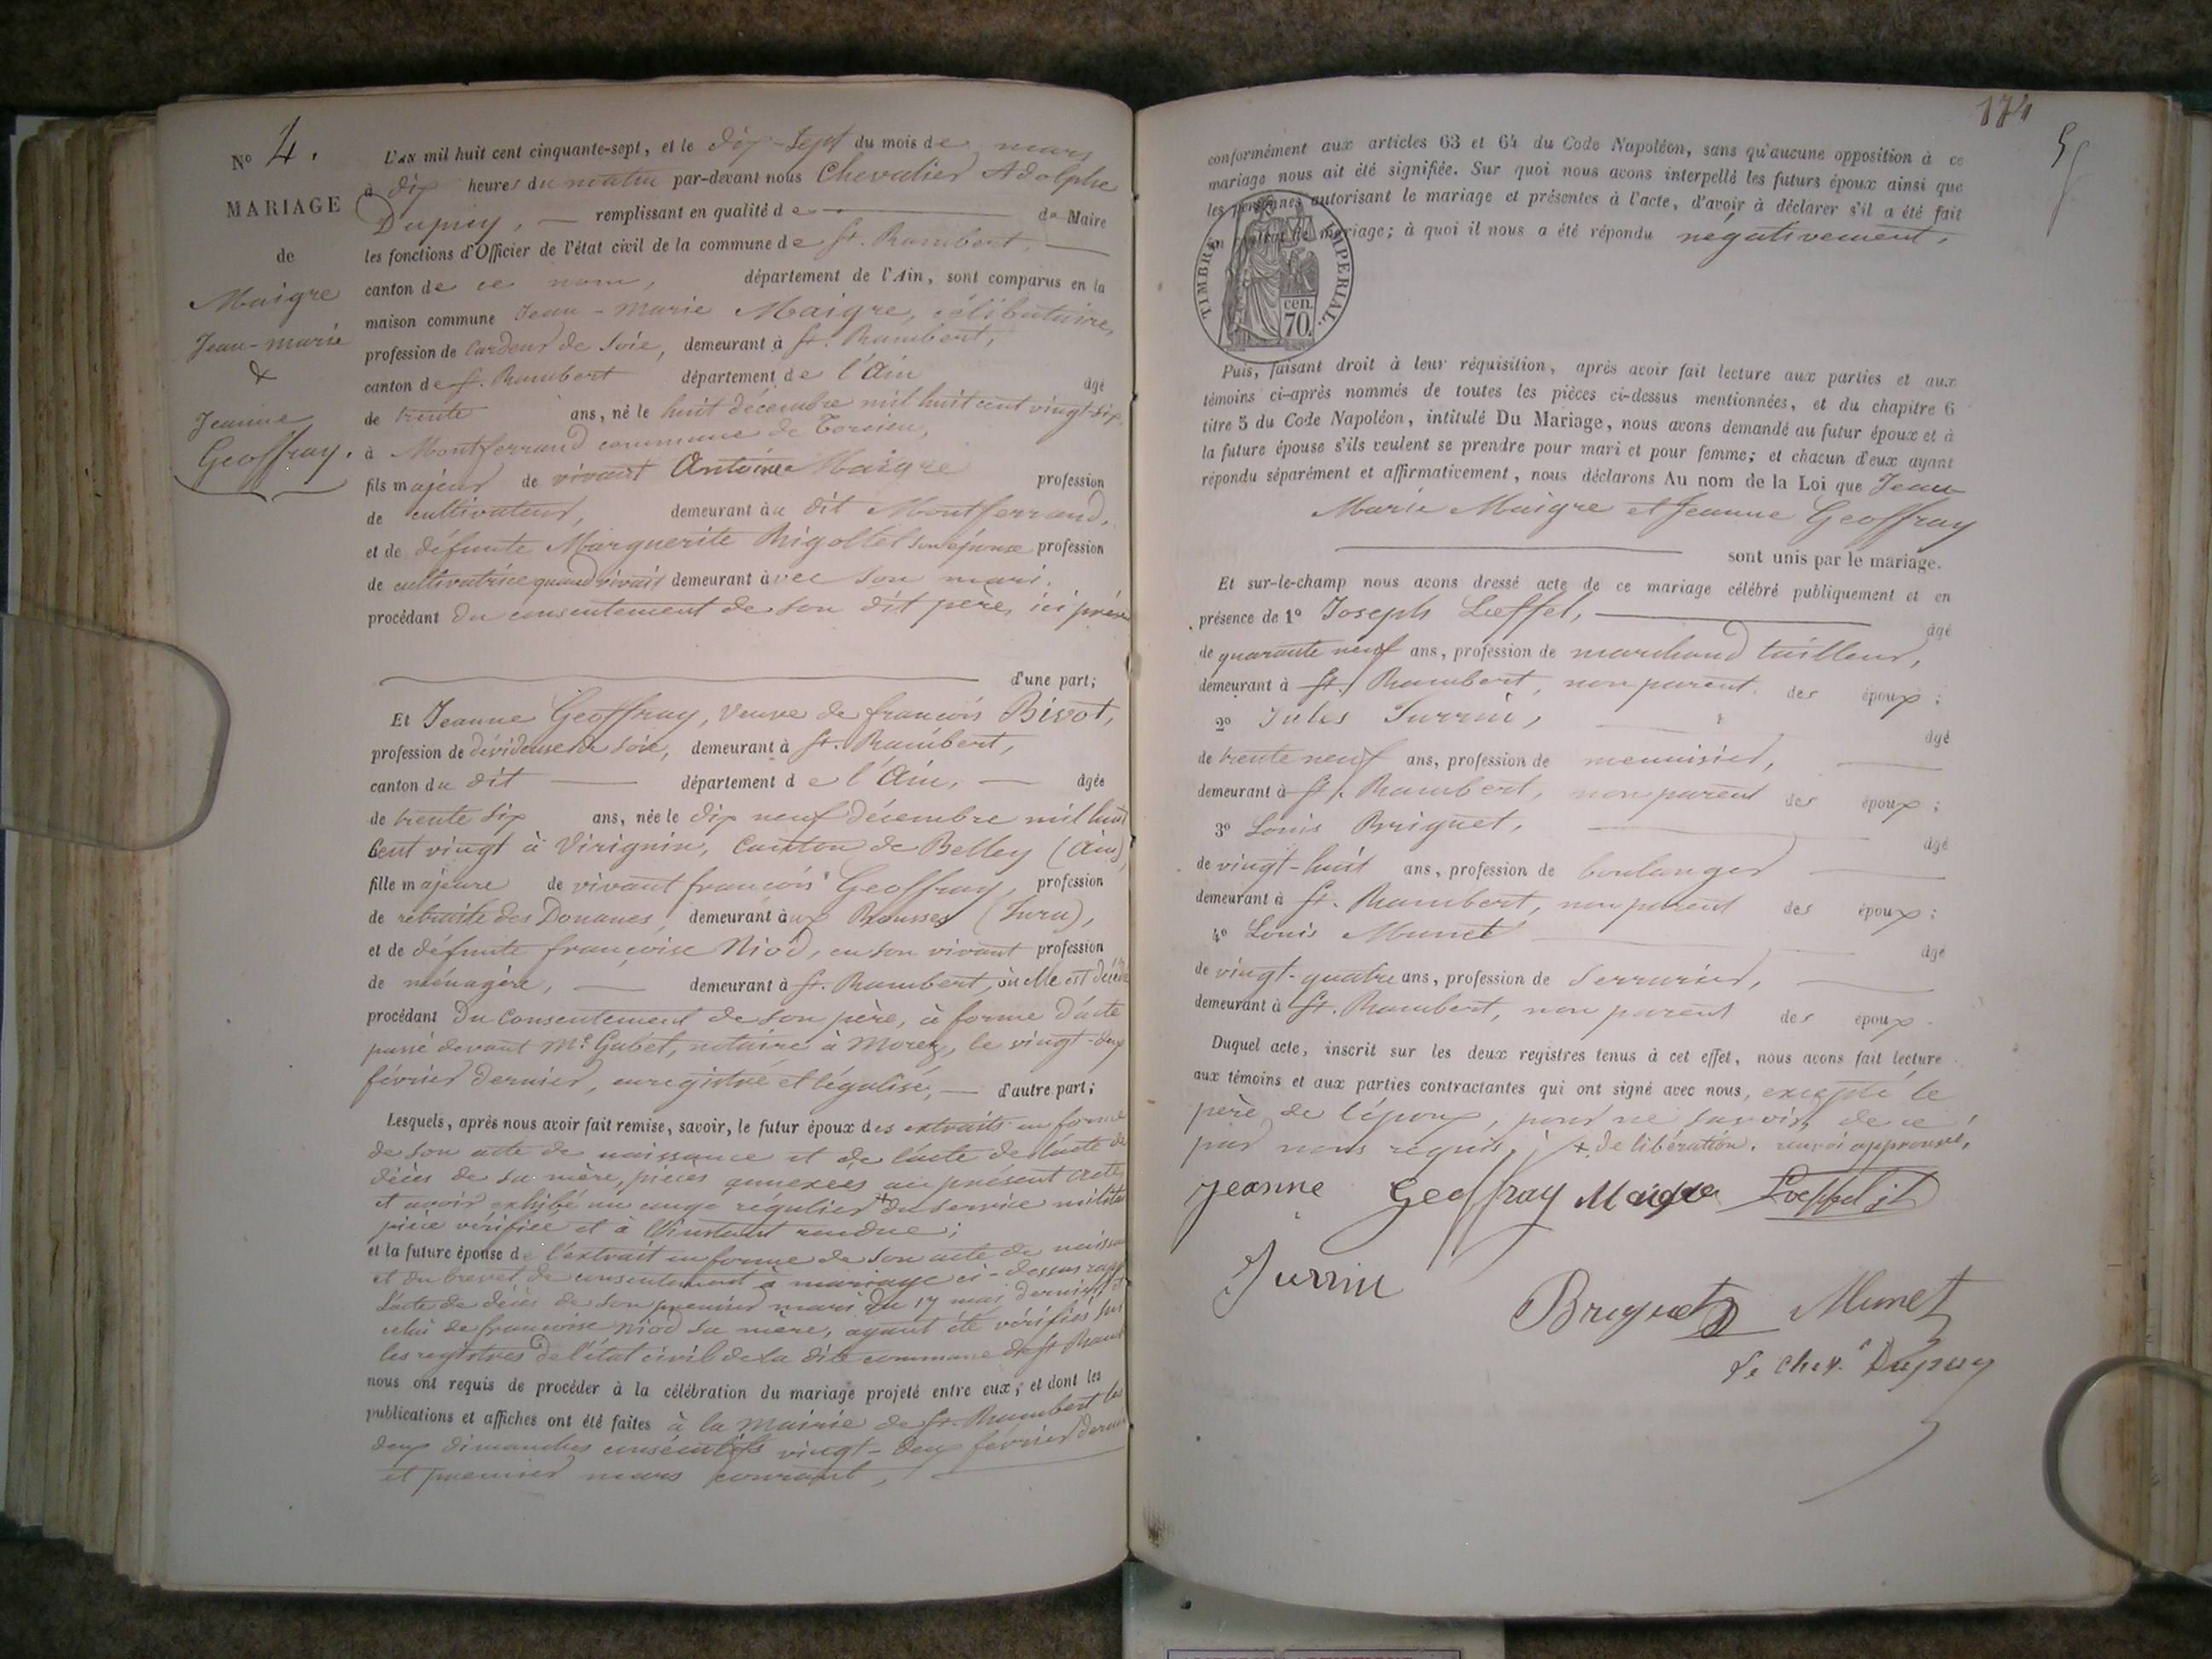 N° 4.
MARIAGE
de
Maigre
Jean-marie
&
Jeanne
Geoffray.
L'AN mil huit cent cinquante-sept, et le dix-Sept du mois de mars
à dix heures du matin par-devant nous Chevalier Adolphe
Dupuy, — remplissant en qualité de — de Maire
les fonctions d'Officier de l'état civil de la commune de St. Rambert, —
canton de ce nom, département de l'Ain, sont comparus en la
maison commune Jean-Marie Maigre, célibataire,
profession de Cardeur de Soie, demeurant à St. Rambert,
canton de St. Rambert département de l'Ain âgé
de trente ans, né le huit décembre mil huit cent vingt-six,
à Montferrand commune de Torcieu,
fils majeur de vivant Antoine Maigre profession
de cultivateur, demeurant au dit Montferrand,
et de défunte Marguerite Rigollet son épouse profession
de cultivatrice quand vivait demeurant avec son mari.
procédant du consentement de son dit père, ici présent
d'une part;
Et Jeanne Geoffray, veuve de françois Bivot,
profession de dévideuse de soie, demeurant à St. Rambert,
canton du dit — département de l'Ain, — âgée
de trente six ans, née le dix neuf décembre mil huit
Cent vingt à Virignin, Canton de Belley (Ain),
fille majeure de vivant françois Geoffray, profession
de retraité des Douanes, demeurant aux Rousses (Jura),
et de défunte françoise Niod, en son vivant profession
de ménagère, — demeurant à St. Rambert, où elle est décédée
procédant du Consentement de son père, à forme d'acte
passé devant Me. Gabet, notaire à Morez, le vingt-deux
février dernier, enregistré et légalisé, — d'autre part;
Lesquels, après nous avoir fait remise, savoir, le futur époux des extraits en forme
de son acte de naissance et de l'acte de l'acte de
décès de sa mère, pièces annexées au présent acte
et avoir exhibé un congé régulier + du service militaire
pièce vérifiée et à l'instant rendue;
et la future épouse de l'extrait en forme de son acte de naissance
et du brevet de consentement à mariage ci-dessus
l'acte de décès de son premier mari du 17 mai dernier et
celui de françoise Niod sa mère, ayant été vérifiés sur
les registres de l'état civil de la dite commune de St. Rambert
nous ont requis de procéder à la célébration du mariage projeté entre eux, et dont les
publications et affiches ont été faites à la Mairie de St. Rambert les
deux dimanches consécutifs vingt-deux février dernier
et premier mars courant, —
174
5
conformément aux articles 63 et 64 du Code Napoléon, sans qu'aucune opposition à ce
mariage nous ait été signifiée. Sur quoi nous avons interpellé les futurs époux ainsi que
les personnes autorisant le mariage et présentes à l'acte, d'avoir à déclarer s'il a été fait
un contrat de mariage; à quoi il nous a été répondu négativement,
TIMBRE IMPERIAL.
cen.
70.
Puis, faisant droit à leur réquisition, après avoir fait lecture aux parties et aux
témoins ci-après nommés de toutes les pièces ci-dessus mentionnées, et du chapitre 6
titre 5 du Code Napoléon, intitulé Du Mariage, nous avons demandé au futur époux et à
la future épouse s'ils veulent se prendre pour mari et pour femme; et chacun d'eux ayant
répondu séparément et affirmativement, nous déclarons Au nom de la Loi que Jean
Marie Maigre et Jeanne Geoffray
— sont unis par le mariage.
Et sur-le-champ nous avons dressé acte de ce mariage célébré publiquement et en
présence de 1° Joseph Lœffel, — âgé
de quarante neuf ans, profession de marchand tailleur,
demeurant à St. Rambert, non parent des époux;
2° Jules Jurrin, — âgé
de trente neuf ans, profession de menuisier, —
demeurant à St. Rambert, non parent des époux;
3° Louis Briguet, — âgé
de vingt-huit ans, profession de boulanger —
demeurant à St. Rambert, non parent des époux;
4° Louis Munet — âgé
de vingt-quatre ans, profession de Serrurier, —
demeurant à St. Rambert, non parent des époux.
Duquel acte, inscrit sur les deux registres tenus à cet effet, nous avons fait lecture
aux témoins et aux parties contractantes qui ont signé avec nous, excepté le
père de l'époux, pour ne savoir, de ce
par nous requis; + de libération. renvoi approuvé,
jeanne Geoffray Maigre Lœffel
Jurrin
Briguet Munet
Le Cher. Dupuy